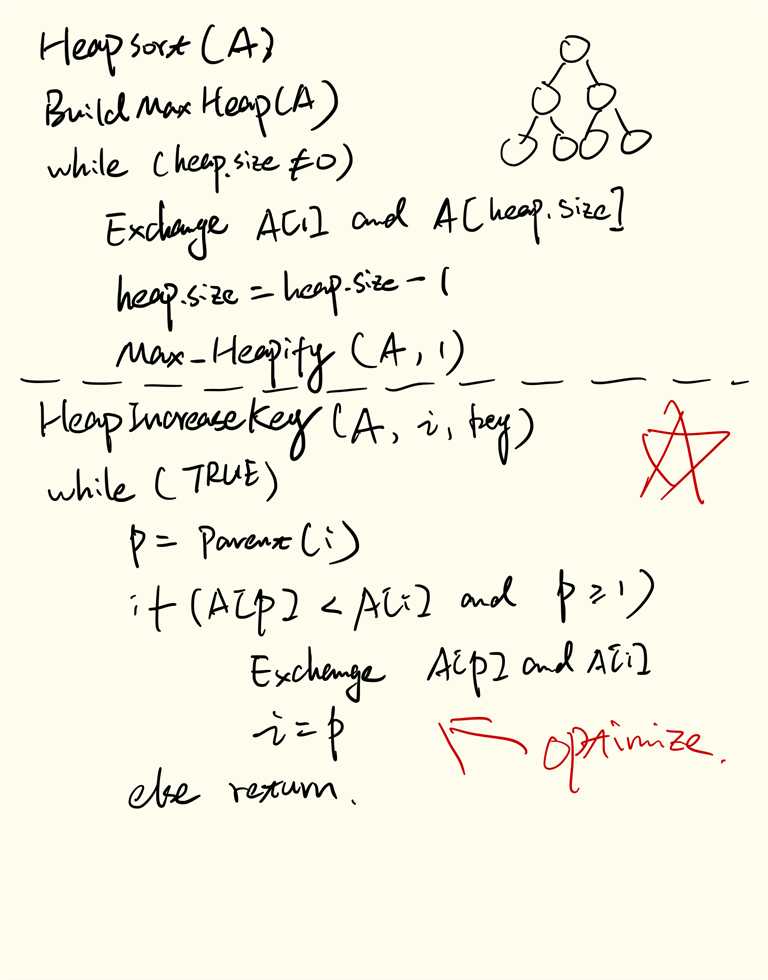 Heapsort (A)
Build Max Heap(A)
while (heap.size ≠ 0)
Exchange A[1] and A[heap.size]
heap.size = heap.size - 1
Max-Heapify (A, 1)
HeapIncreaseKey (A, i, key)
while (TRUE)
p = Parent(i)
if (A[p] < A[i] and p ≥ 1)
Exchange A[p] and A[i]
i = p
optimize.
else return.